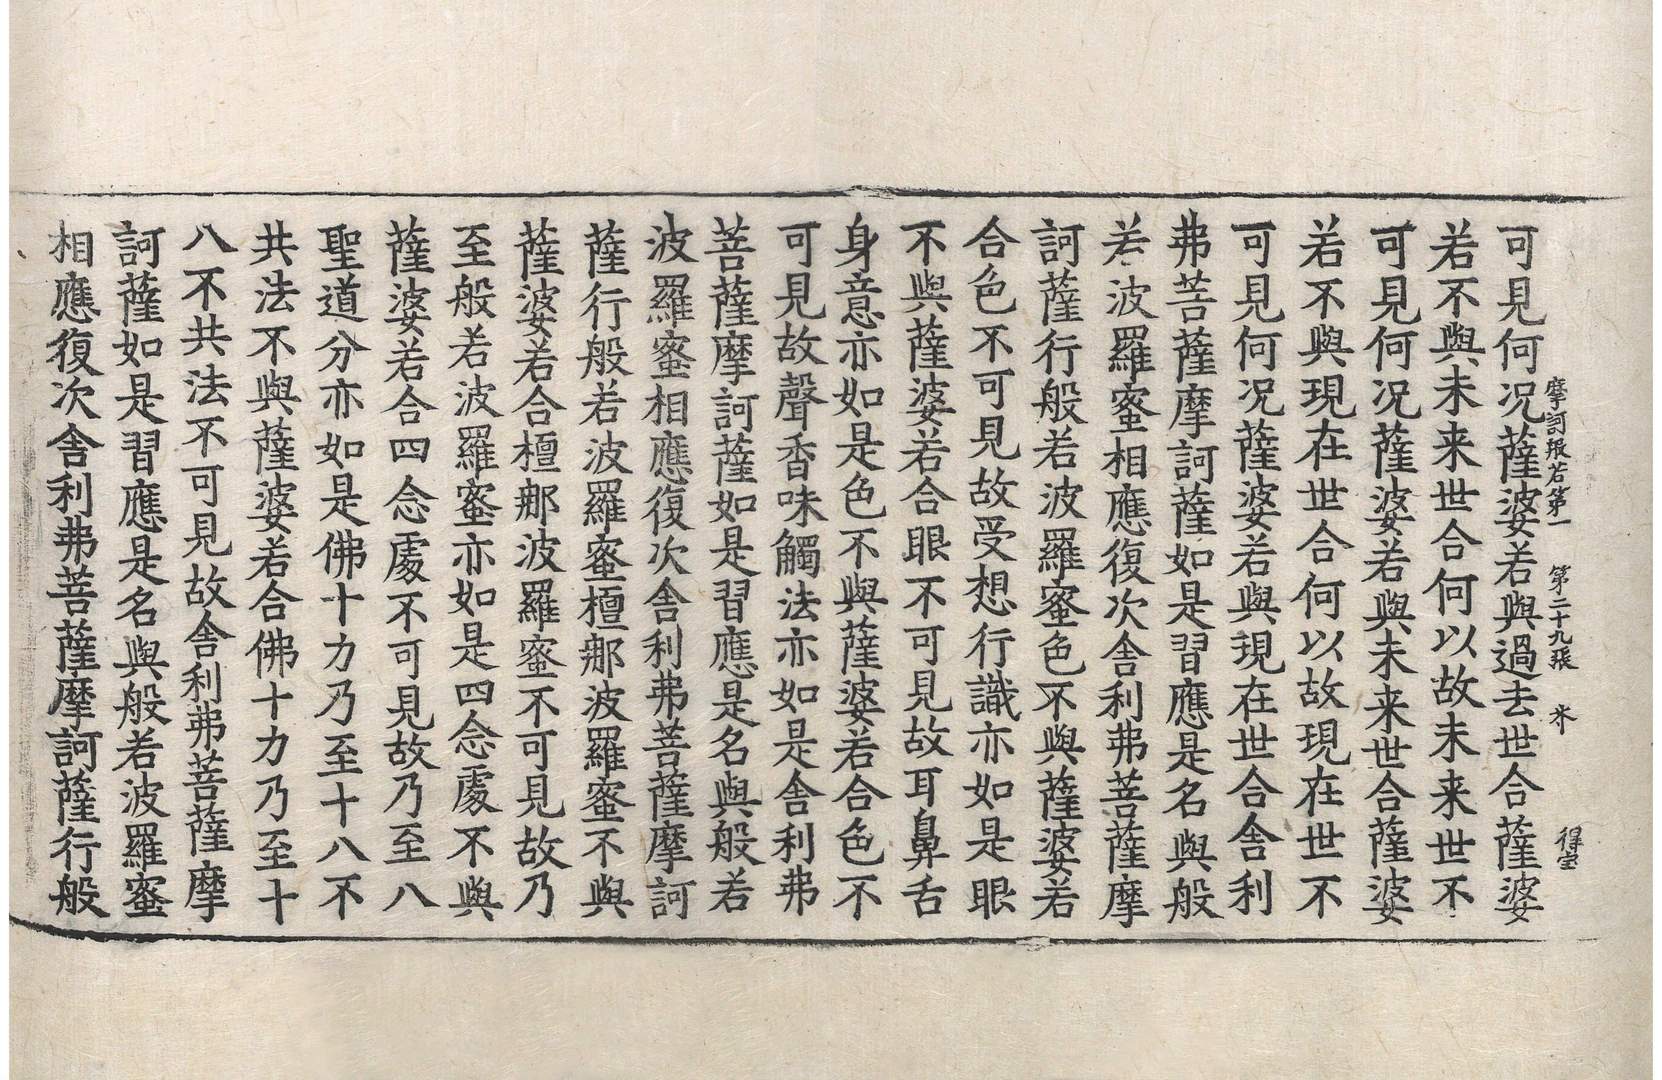 摩訶般若第一 第二十九張
可見何况薩婆若與過去世合薩婆
若不與未来世合何以故未来世不
可見何况薩婆若與未来世合薩婆
若不與現在世合何以故現在世不
可見何况薩婆若與現在世合舎利
弗菩薩摩訶薩如是習應是名與般
若波羅蜜相應復次舎利弗菩薩摩
訶薩行般若波羅蜜色不與薩婆若
合色不可見故受想行識亦如是眼
不與薩婆若合眼不可見故耳鼻舌
身意亦如是色不與薩婆若合色不
可見故聲香味觸法亦如是舎利弗
菩薩摩訶薩如是習應是名與般若
波羅蜜相應復次舎利弗菩薩摩訶
薩行般若波羅蜜檀那波羅蜜不與
薩婆若合檀那波羅蜜不可見故乃
至般若波羅蜜亦如是四念處不與
薩婆若合四念處不可見故乃至八
聖道分亦如是佛十力乃至十八不
共法不與薩婆若合佛十力乃至十
八不共法不可見故舎利弗菩薩摩
訶薩如是習應是名與般若波羅蜜
相應復次舎利弗菩薩摩訶薩行般